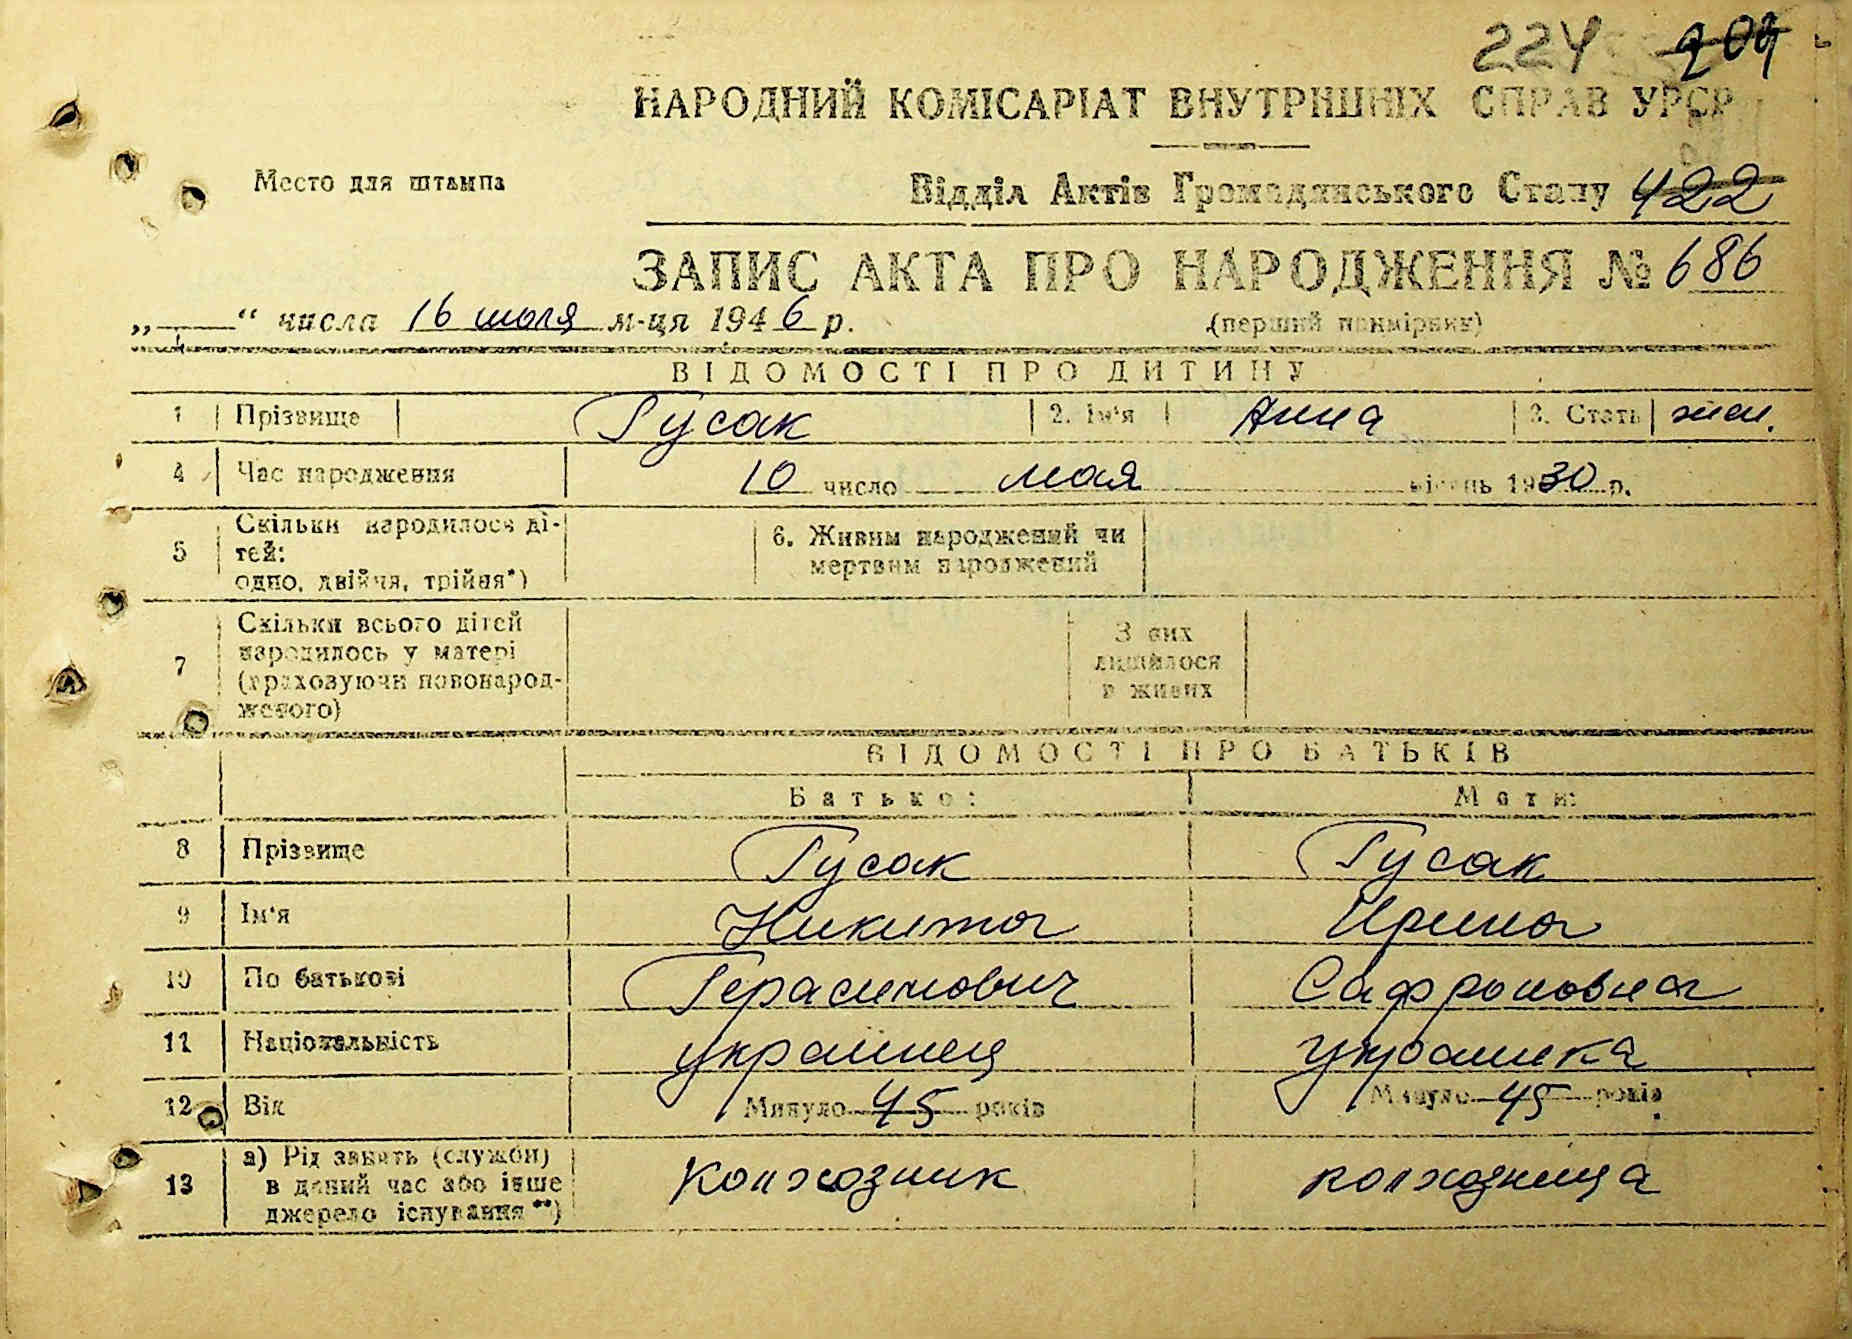 224 209
НАРОДНИЙ КОМІСАРІАТ ВНУТРІШНІХ СПРАВ УРСР
Место для штампа
Відділ Актів Громадянського Стану 422
ЗАПИС АКТА ПРО НАРОДЖЕННЯ № 686
„ “ числа 16 июля м-ця 1946 р.
(перший примірник)
ВІДОМОСТІ ПРО ДИТИНУ
1 Прізвище Гусак 2. Ім'я Анна 3. Стать жен.
4 Час народження 10 число мая місяць 1930 р.
5 Скільки народилося ді-
тей:
одно, двійня, трійня*)
6. Живим народжений чи
мертвим народжений
7 Скільки всього дітей
народилось у матері
(враховуючи новонарод-
женого)
З них
лишилося
в живих
ВІДОМОСТІ ПРО БАТЬКІВ
Батько: Мати:
8 Прізвище Гусак Гусак
9 Ім'я Никита Ирина
10 По батькові Герасимович Сафроновна
11 Національність украинец украинка
12 Вік Минуло 45 років Минуло 45 років
13 а) Рід занять (служби)
в даний час або інше
джерело існування**)
колхозник колхозница